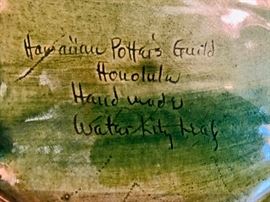 Hawaiian Potter's Guild
Honolulu
Hand made
Water Lily Leaf